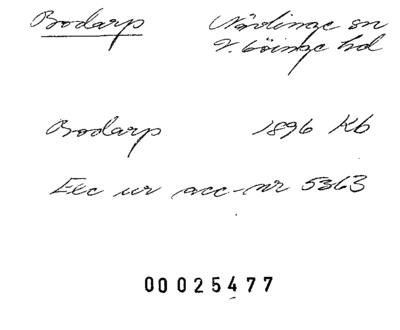 Bodarp
Nävlinge sn
V. Göinge hd
Bodarp 1896 Kb
Exc ur acc-nr 5363
00025477